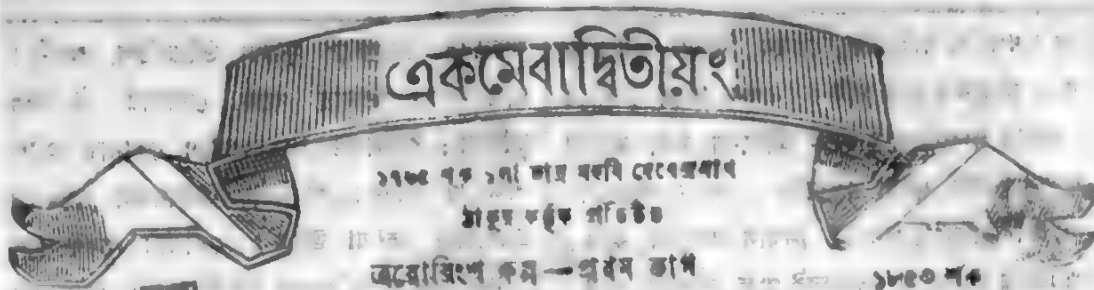 একমেবাদ্বিতীয়ং
১৭৬৫ শক ১লা ভাদ্র মহর্ষি দেবেন্দ্রনাথ
ঠাকুর কর্ত্তৃক প্রতিষ্ঠিত
ত্রয়োবিংশ কল্প—প্রথম ভাগ
১৮৫৩ শক